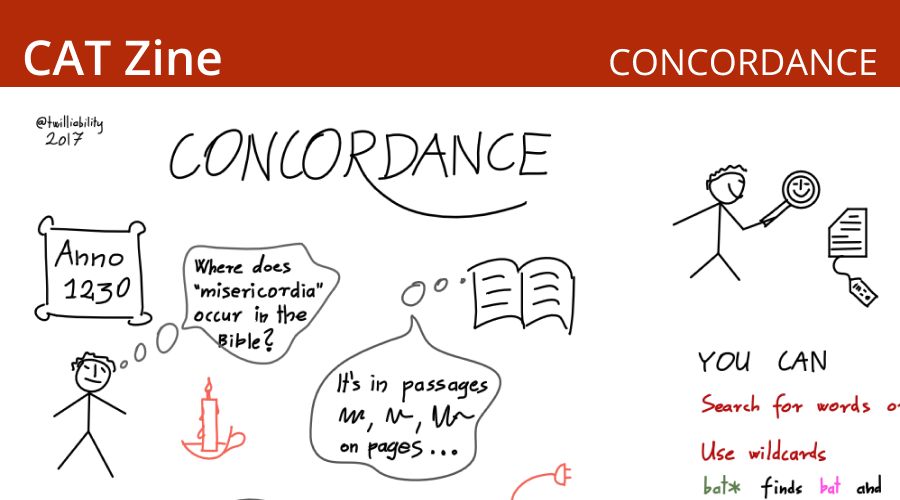 CAT Zine
CONCORDANCE
@twilliability
2017
CONCORDANCE
Anno
1230
Where does
"misericordia"
occur in the
Bible?
It's in passages
on pages...
YOU CAN
Search for words
Use wildcards
bat* finds bat and